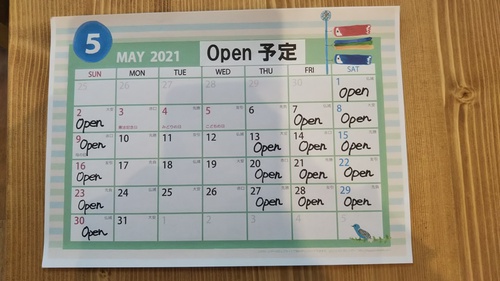 5 MAY 2021 Open 予定
SUN MON TUE WED THU FRI SAT
25 26 27 28 29 30 1
Open
2 3 4 5 6 7 8
Open Open Open
憲法記念日 みどりの日 こどもの日
9 10 11 12 13 14 15
Open Open Open Open
16 17 18 19 20 21 22
Open Open Open Open
23 24 25 26 27 28 29
Open Open Open Open
30 31 1 2 3 4 5
Open